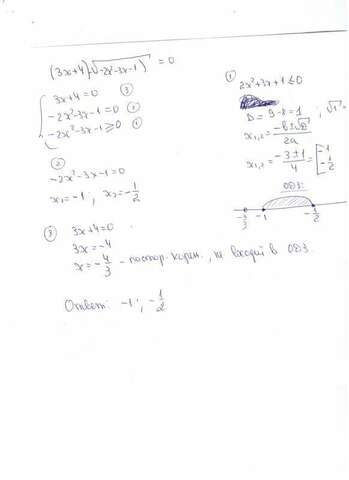 (3x+4)√(-2x²-3x-1) = 0
{ 3x+4=0 ③
-2x²-3x-1=0 ②
-2x²-3x-1⩾0 ①
①
2x²+3x+1⩽0
D = 9-8=1 ; √1
x₁,₂ = (-b±√D)/2a
x₁,₂ = (-3±1)/4 = [ -1
-1/2
ОДЗ:
-4/3 -1 -1/2
②
-2x²-3x-1=0
x₁=-1 ; x₂=-1/2
③ 3x+4=0
3x=-4
x=-4/3 - постор. корен., не входит в ОДЗ.
Ответ: -1 ; -1/2